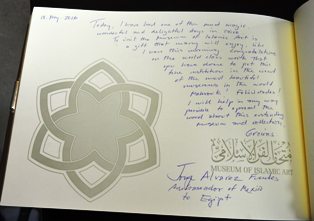 12 May 2018
Today, I have had one of the most magic,
wonderful and delightful days in Cairo
To visit the Museum of Islamic Art is
a gift that many will enjoy, like
I was this morning. Congratulations
on the world class work that
you have done to put this
fine institution in the word
of the most beautiful
museums in the world
Mabrouk! Felicidades!
I will help in any way
possible to spread the
word about this
museum and collection
متحف الفن الإسلامي
MUSEUM OF ISLAMIC ART
Jose Alvarez Fuentes
Ambassador of Mexico
to Egypt